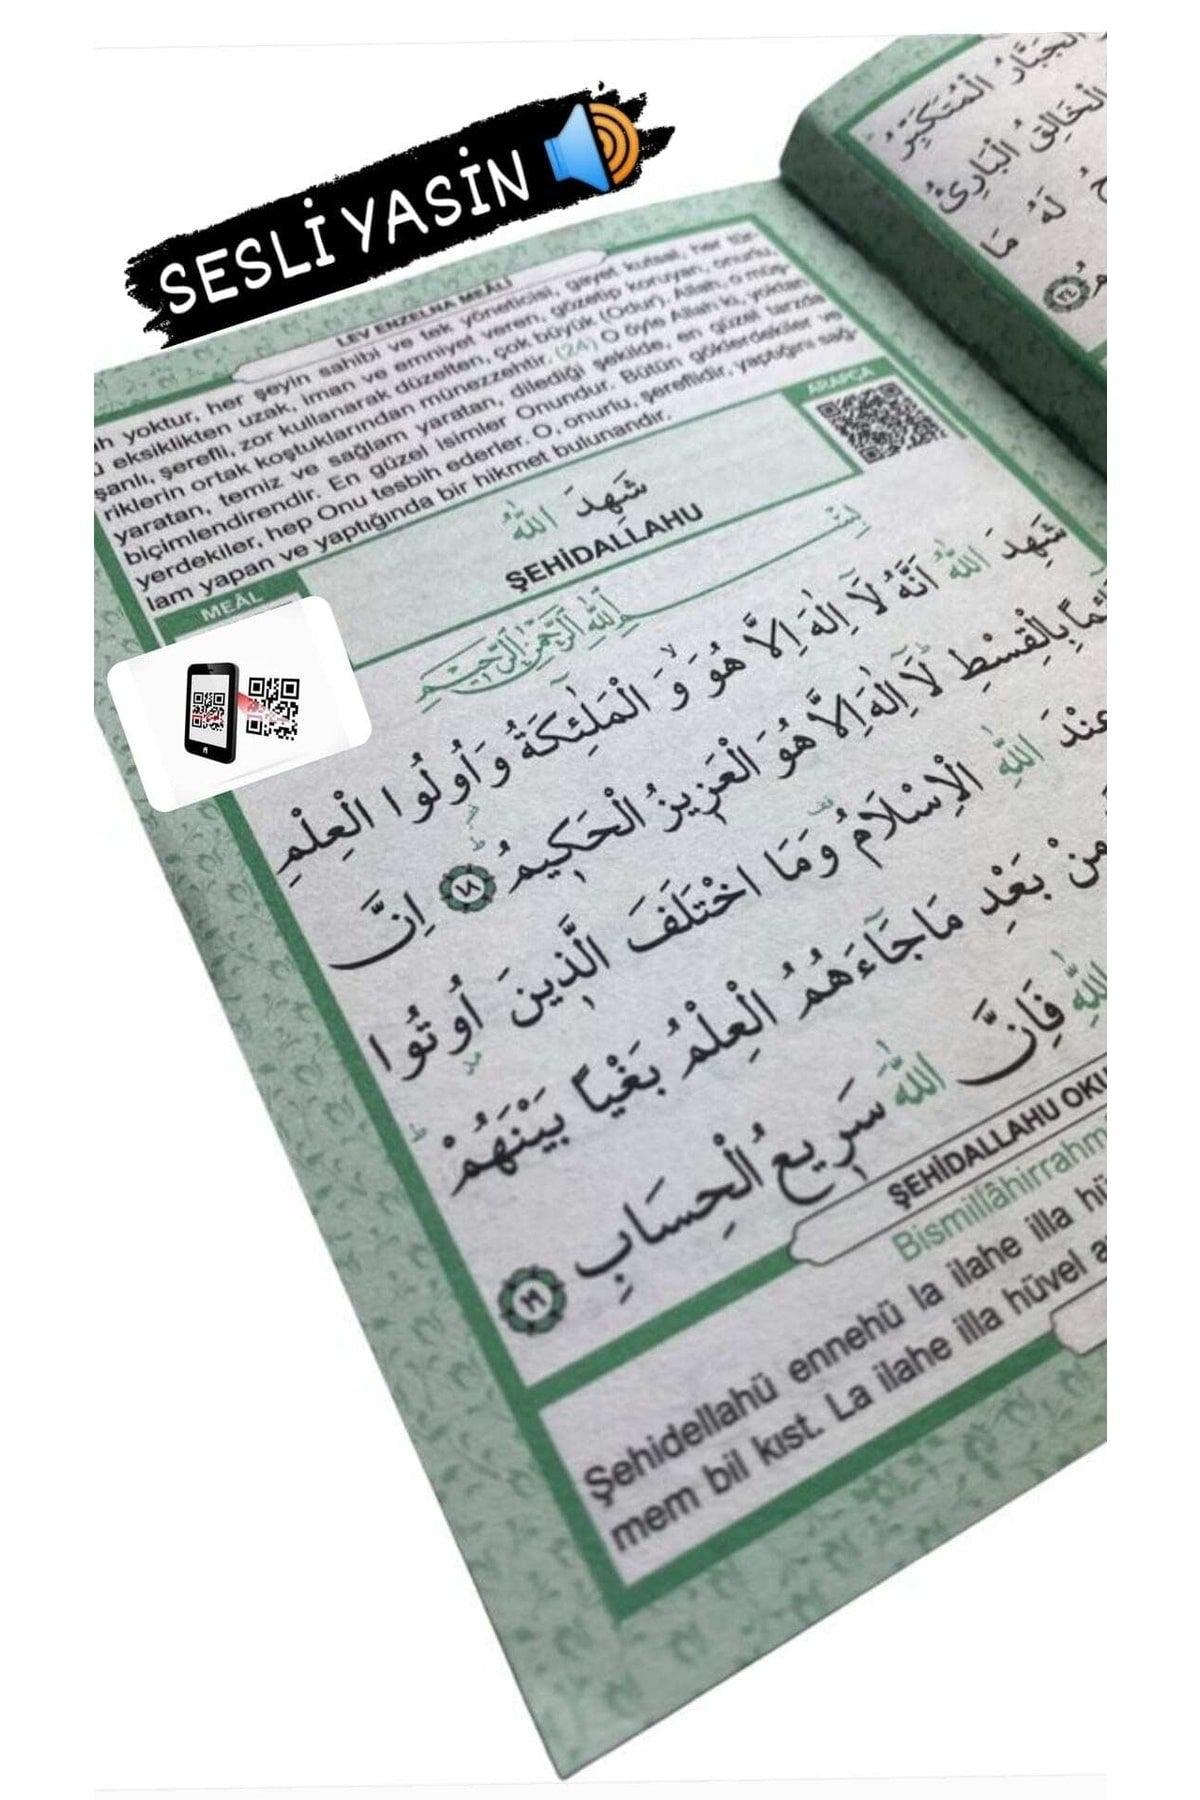 SESLİ YASİN
LEV ENZELNA MEÂLİ
yoktur, her şeyin sahibi ve tek yöneticisi, gayet kutsal, her tür
eksiklikten uzak, iman ve emniyet veren, gözetip koruyan, onurlu,
şanlı, şerefli, zor kullanarak düzelten, çok büyük (Odur). Allah, o müş-
riklerin ortak koştuklarından münezzehtir. (24) O öyle Allah ki, yoktan
yaratan, temiz ve sağlam yaratan, dilediği şekilde, en güzel tarzda
biçimlendirendir. En güzel isimler Onundur. Bütün göklerdekiler ve
yerdekiler, hep Onu tesbih ederler. O, onurlu, şereflidir, yaptığını sağ-
lam yapan ve yaptığında bir hikmet bulunandır.
ARAPÇA
MEÂL
شَهِدَ اللّٰهُ
ŞEHİDALLAHU
بِسْمِ اللّٰهِ الرَّحْمٰنِ الرَّحِيمِ
شَهِدَ اللّٰهُ اَنَّهُ لَٓا اِلٰهَ اِلَّا هُوَۙ وَ الْمَلٰٓئِكَةُ وَ اُولُوا الْعِلْمِ
بِالْقِسْطِۜ لَٓا اِلٰهَ اِلَّا هُوَ الْعَزِيزُ الْحَكِيمُۜ ﴿١٨﴾ اِنَّ
عِنْدَ اللّٰهِ الْاِسْلَامُ وَمَا اخْتَلَفَ الَّذِينَ اُوتُوا
مِنْ بَعْدِ مَا جَٓاءَهُمُ الْعِلْمُ بَغْياً بَيْنَهُمْۜ
اللّٰهِ فَاِنَّ اللّٰهَ سَرِيعُ الْحِسَابِ ﴿١٩﴾
ŞEHİDALLAHU
Şehidellahü ennehü la ilahe illa
mem bil kıst. La ilahe illa hüvel
الْجَبَّارُ الْمُتَكَبِّرُ
الْخَالِقُ الْبَارِئُ
لَهُ مَا
﴿٢٤﴾